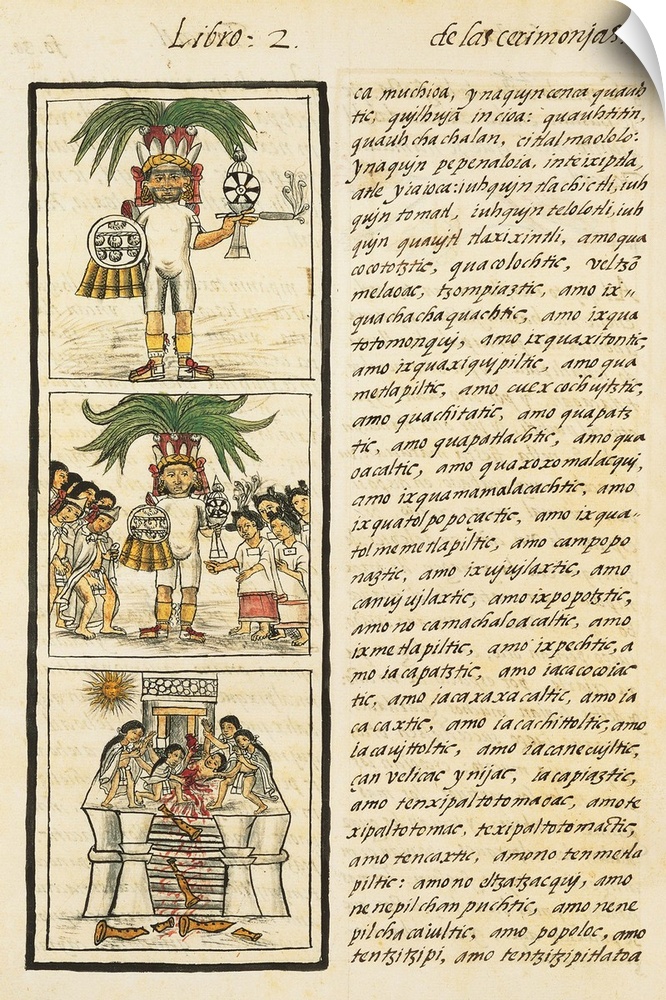 Libro: 2. de las cerimonjas.
ca muchioa, ynaqujn cenca quauh
tic, qujlhujā in cioa: quauhtitin,
quauhchachalan, citlalmaololo:
ynaqujn pepenaloia, inteixiptla,
atle yiaioca: iuhqujn tlachictli, iuh
qujn tomatl, iuhqujn telolotli, iuh
qujn quavjtl tlaxixintli, amo qua
cocototztic, quacolochtic, veltzō
melaoac, tzompiaztic, amo ix=
quachachaquachtic, amo ixqua
totomonquj, amo ixquaxitontic,
amo ixquaxiqujpiltic, amo qua
metlapiltic, amo cuexcochujtztic,
amo quachitatic, amo quapatz
tic, amo quapatlachtic, amo qua
oacaltic, amo quaxoxomalacquj,
amo ixquamamalacachtic, amo
ixquatolpopoçactic, amo ixqua-
tolmemetlapiltic, amo campopo
naztic, amo ixvjvjlaxtic, amo
canvjvjlaxtic, amo ixpopotztic,
amo no camachaloacaltic, amo
ixmetlapiltic, amo ixpechtic, a
mo iacapatztic, amo iacacocoiac
tic, amo iacaxaxacaltic, amo ia
cacaxtic, amo iacachittoltic, amo
iacavjtoltic, amo iacanecujltic,
çan velicac ynijac, iacapiaztic,
amo tenxipaltotomaoac, amo te
xipaltotomac, texipaltotomactic,
amo tencaxtic, amono tenmetla
piltic: amono eltzatzacquj, amo
nenepilchanpuchtic, amo nene
pilchacaiultic, amo popoloc, amo
tentzitzipi, amo tentzitzipitlatoa